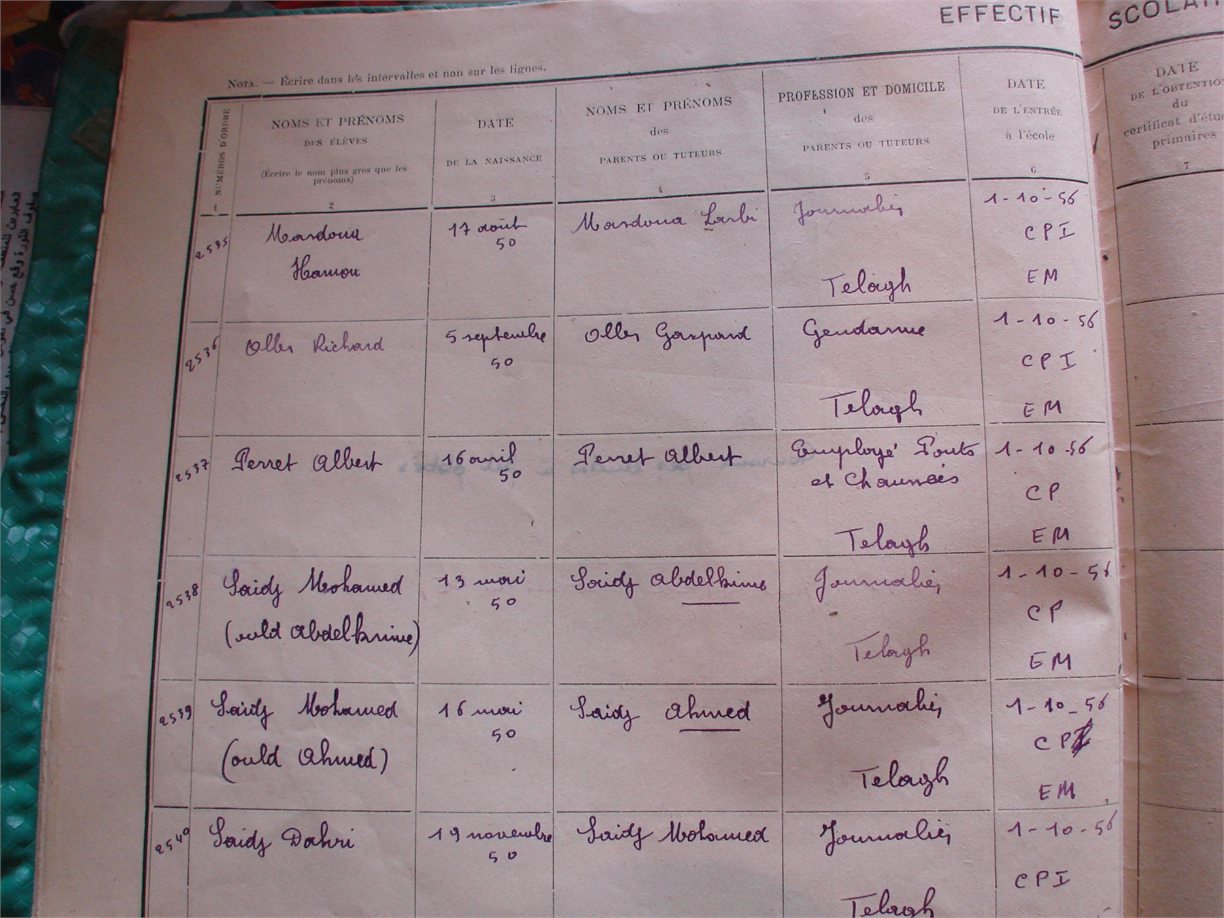 EFFECTIF SCOLAI
NOTA. — Écrire dans les intervalles et non sur les lignes.
NUMÉROS D'ORDRE
1
NOMS ET PRÉNOMS
DES ÉLÈVES
(Écrire le nom plus gros que les
prénoms)
2
DATE
DE LA NAISSANCE
3
NOMS ET PRÉNOMS
des
PARENTS OU TUTEURS
4
PROFESSION ET DOMICILE
des
PARENTS OU TUTEURS
5
DATE
DE L'ENTRÉE
à l'école
6
DATE
DE L'OBTENTIO
du
certificat d'étu
primaires
7
2535
Mardoua
Hamou
17 août
50
Mardoua Larbi
Journalier
Telagh
1-10-56
CPI
EM
2536
Olles Richard
5 septembre
50
Olles Gaspard
Gendarme
Telagh
1-10-56
CPI
EM
2537
Perret Albert
16 avril
50
Perret Albert
Employé Ponts
et Chaussées
Telagh
1-10-56
CP
EM
2538
Saidj Mohamed
(ould Abdelkrime)
13 mai
50
Saidj Abdelkrime
Journalier
Telagh
1-10-56
CP
EM
2539
Saidj Mohamed
(ould Ahmed)
16 mai
50
Saidj Ahmed
Journalier
Telagh
1-10-56
CP
EM
2540
Saidj Dahri
19 novembre
50
Saidj Mohamed
Journalier
Telagh
1-10-56
CPI